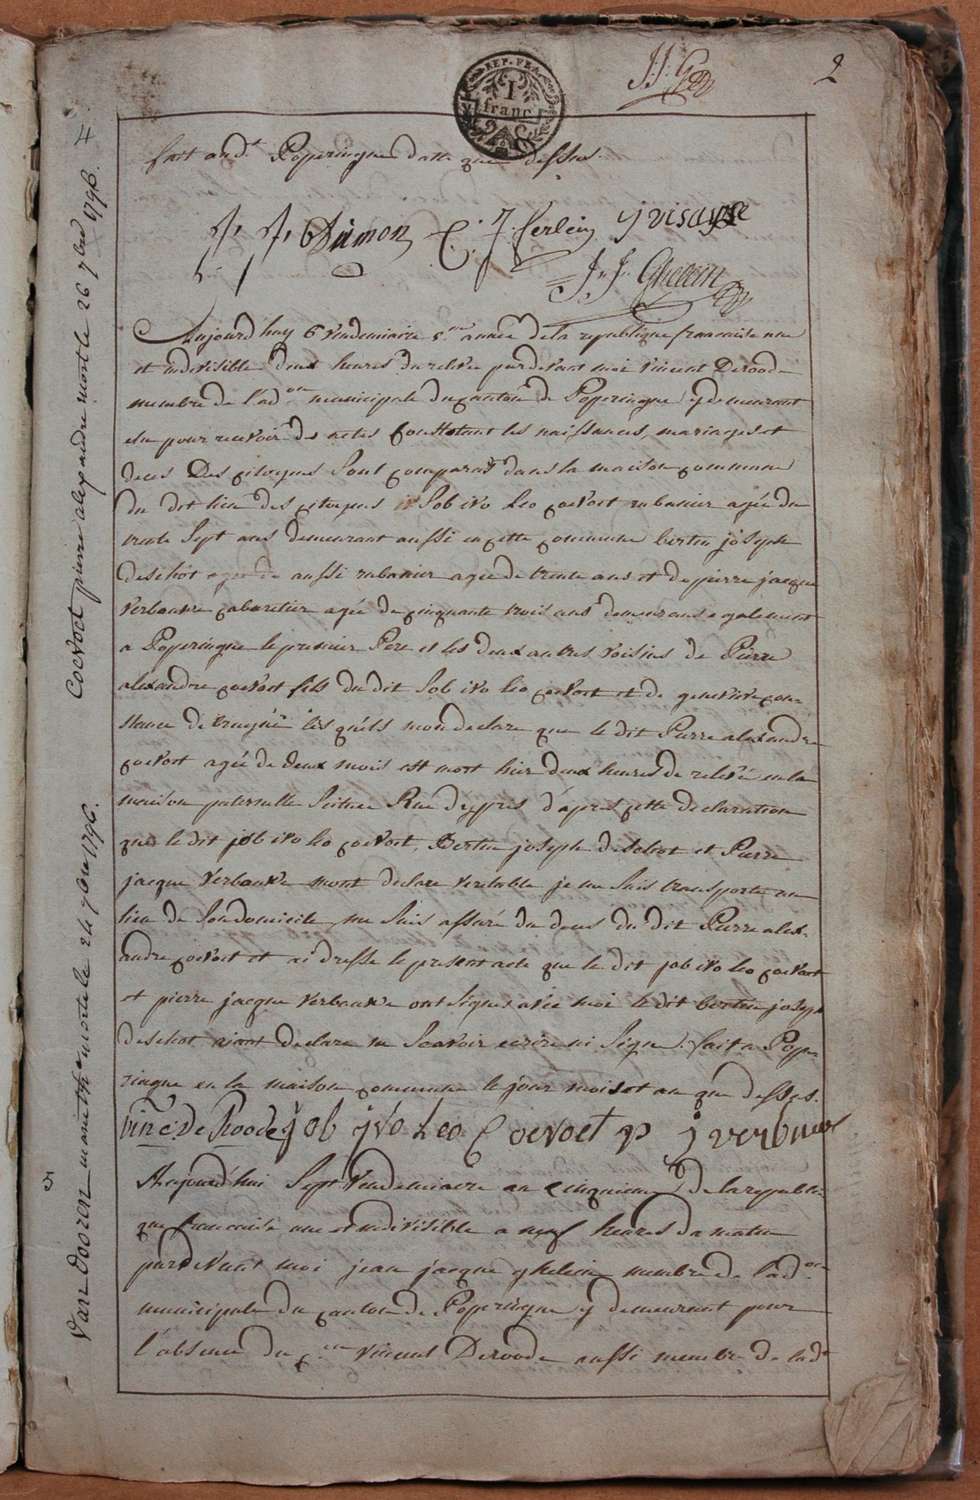 J: J: G
2
REP. FRA.
1
franc
fait aud.t Poperingue datte que dessus.
J. J. C. J. Terlein j visage
J. J. Ghelein
Aujourd'huy 6 vendemiaire 5.me année de la republique francaise une
et indivisible deux heures du relevée pardevant moi vincent Deroode
membre de l'ad.on municipale du canton de Poperingue y demeurant
elu pour recevoir des actes Constatant les naissances, mariages et
deces Des citoyens Sont comparus dans la maison commune
du dit lieu des citoyens Job ivo Leo coevoet rubanier agée du
trente Sept ans demeurant aussi en cette commune bertin joseph
deschot aussi rubanier agée de trente ans et de pierre jacque
verbauwe cabaretier agée de cinquante trois ans demeurans egalement
a Poperingue le premier Pere et les deux autres voisins de Pierre
alexandre coevoet fils du dit Job ivo leo coevoet et de genevieve con
stance de les quels mon declare que le dit Pierre alexandre
coevoet agée de deux mois est mort hier deux heures de relevée en la
maison paternelle Scituee Rue d'ypres d'apres cette declaration
que le dit job ivo leo coevoet, Bertin joseph deschot et Pierre
jacque verbauwe mont declare veritable je me suis transporte au
lieu de Son domicile, me suis assuré du deces du dit Pierre alex-
andre coevoet et ai dresse le present acte que le dit job ivo leo coevoet
et pierre jacque verbauwe ont signes avec moi le dit bertin joseph
deschot aiant declare ne Scavoir ecrire ni Signe: fait a Pope
ringue en la maison commune le jour mois et an que dessus.
vinc.t De Roode job jvo Leo Coevoet p j verbauwe
Aujourd'hui Sept vendemiaire an cinquieme de la republi-
que francaise une et indivisible a neuf heures du matin
pardevant moi jean jacque ghelein membre de l'ad.on
municipale du canton de Poperingue y demeurant pour
l'absence du c.en vincent Deroode aussi membre de l'ad.on
4
Coevoet pierre alexandre mort le 26 7bre 1796.
5
Van Dooren morte le 24 7bre 1796.